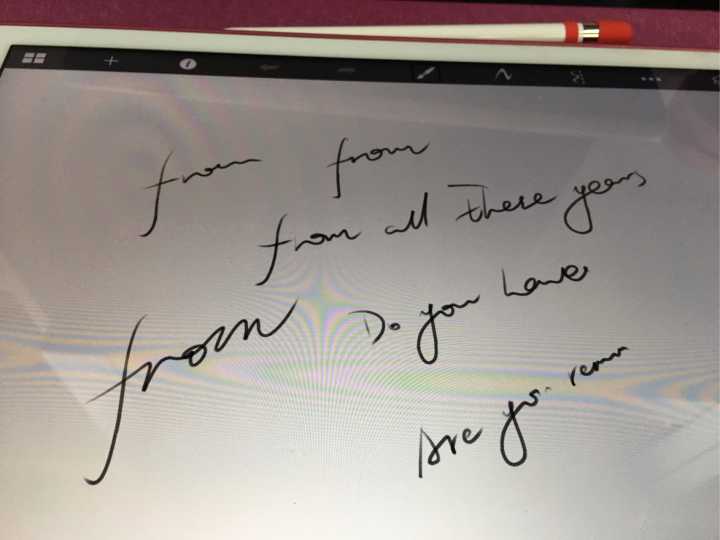 from from
from all these years
from Do you have
Are you